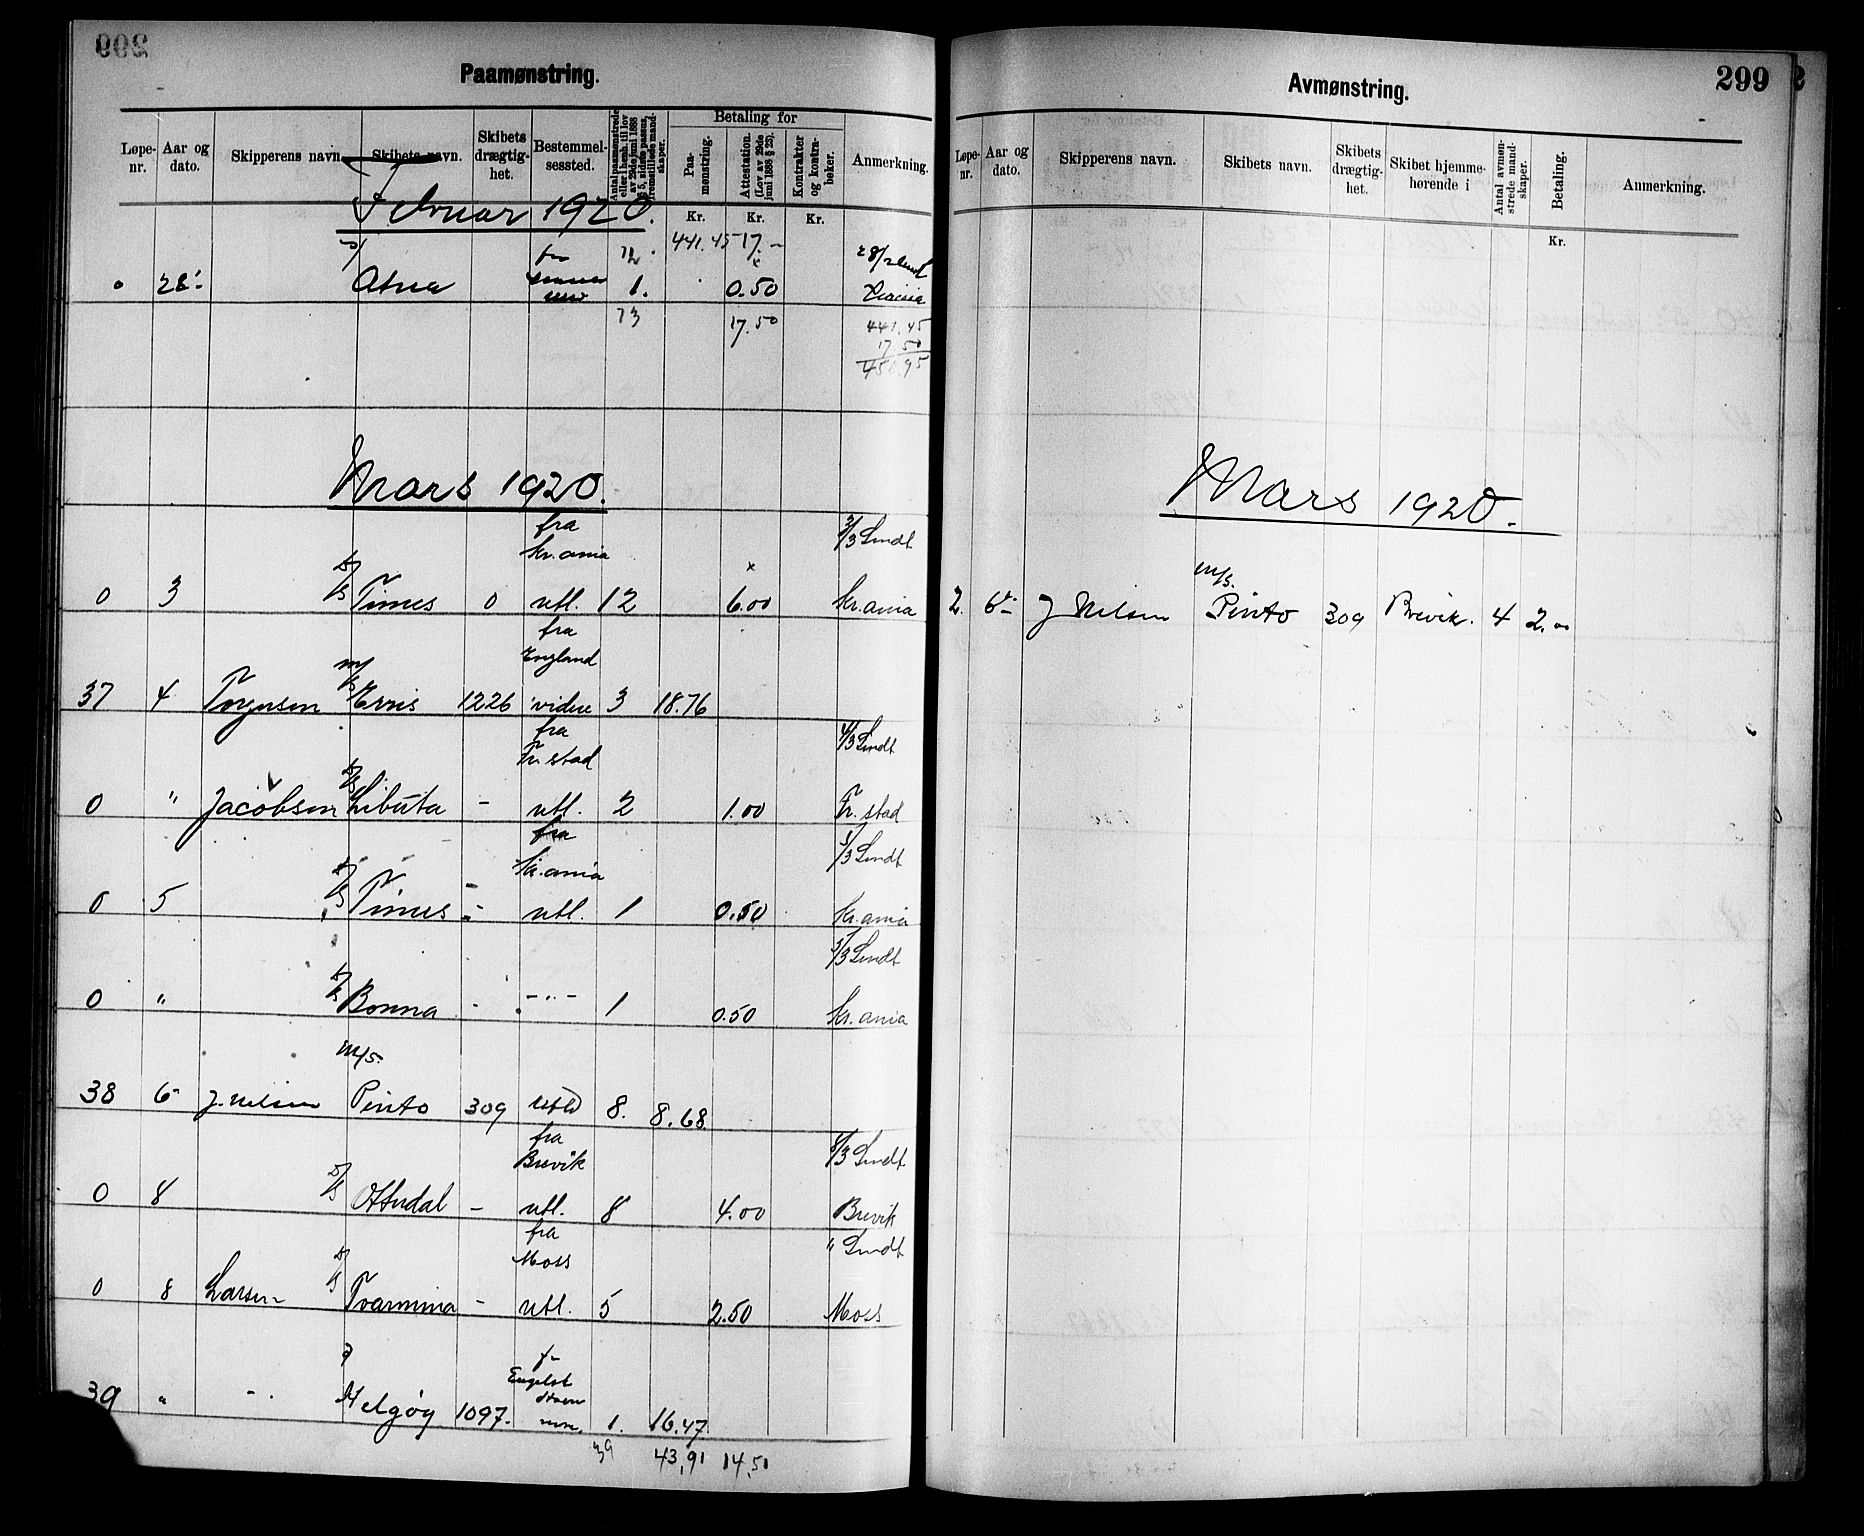 Paamønstring.
Løpe-nr. Aar og dato. Skipperens navn. Skibets navn. Skibets drægtig-het. Bestemmel-sessted. Antal paamønstrede eller i henh. til lov av 29de juni 1888 § 5, sidste passus, fremstillede mand-skaper. Betaling for Paa-mønstring. Attestation. (Lov av 29de juni 1888 § 23). Kontrakter og kontra-bøker. Anmerkning.
Februar 1920.
Kr. Kr. Kr.
72 441.45 17.-
28/2
0 28 Atna 1. 0.50
73 17.50 441.45
17 50
Mars 1920.
fra 3/3 Sendt
Kr.ania
0 3 D/S Times 0 utl. 12 6.00 Kr.ania
fra
England
37 4 Torgersen m/s 1226 videre 3 18.76
fra 4/3 Sendt
Fr.stad
0 " Jacobsen D/S Libuta - utl. 2 1.00 Fr.stad
fra 5/3 Sendt
Kr.ania
0 5 D/S Times - utl. 1 0.50 Kr.ania
5/3 Sendt
0 " D/S Bonna - -"- 1 0.50 Kr.ania
m/s.
38 6 J. Nelsen Pinto 309 utld 8. 8.68
fra 8/3 Sendt
Brevik
0 8 D/S Ottedal - utl. 8 4.00 Brevik
fra " Sendt
Moss
0 8 Larsen D/S Tvarmina - utl. 5 2.50 Moss
39 " -"- Helgøy 1097. 1. 16.47
39 43,91 14,51
299
Avmønstring.
Løpe-nr. Aar og dato. Skipperens navn. Skibets navn. Skibets drægtig-het. Skibet hjemme-hørende i Antal avmøn-strede mand-skaper. Betaling. Anmerkning.
Kr.
Mars 1920.
m/s.
2. 6 J Nelsen Pinto 309 Brevik. 4 2.00